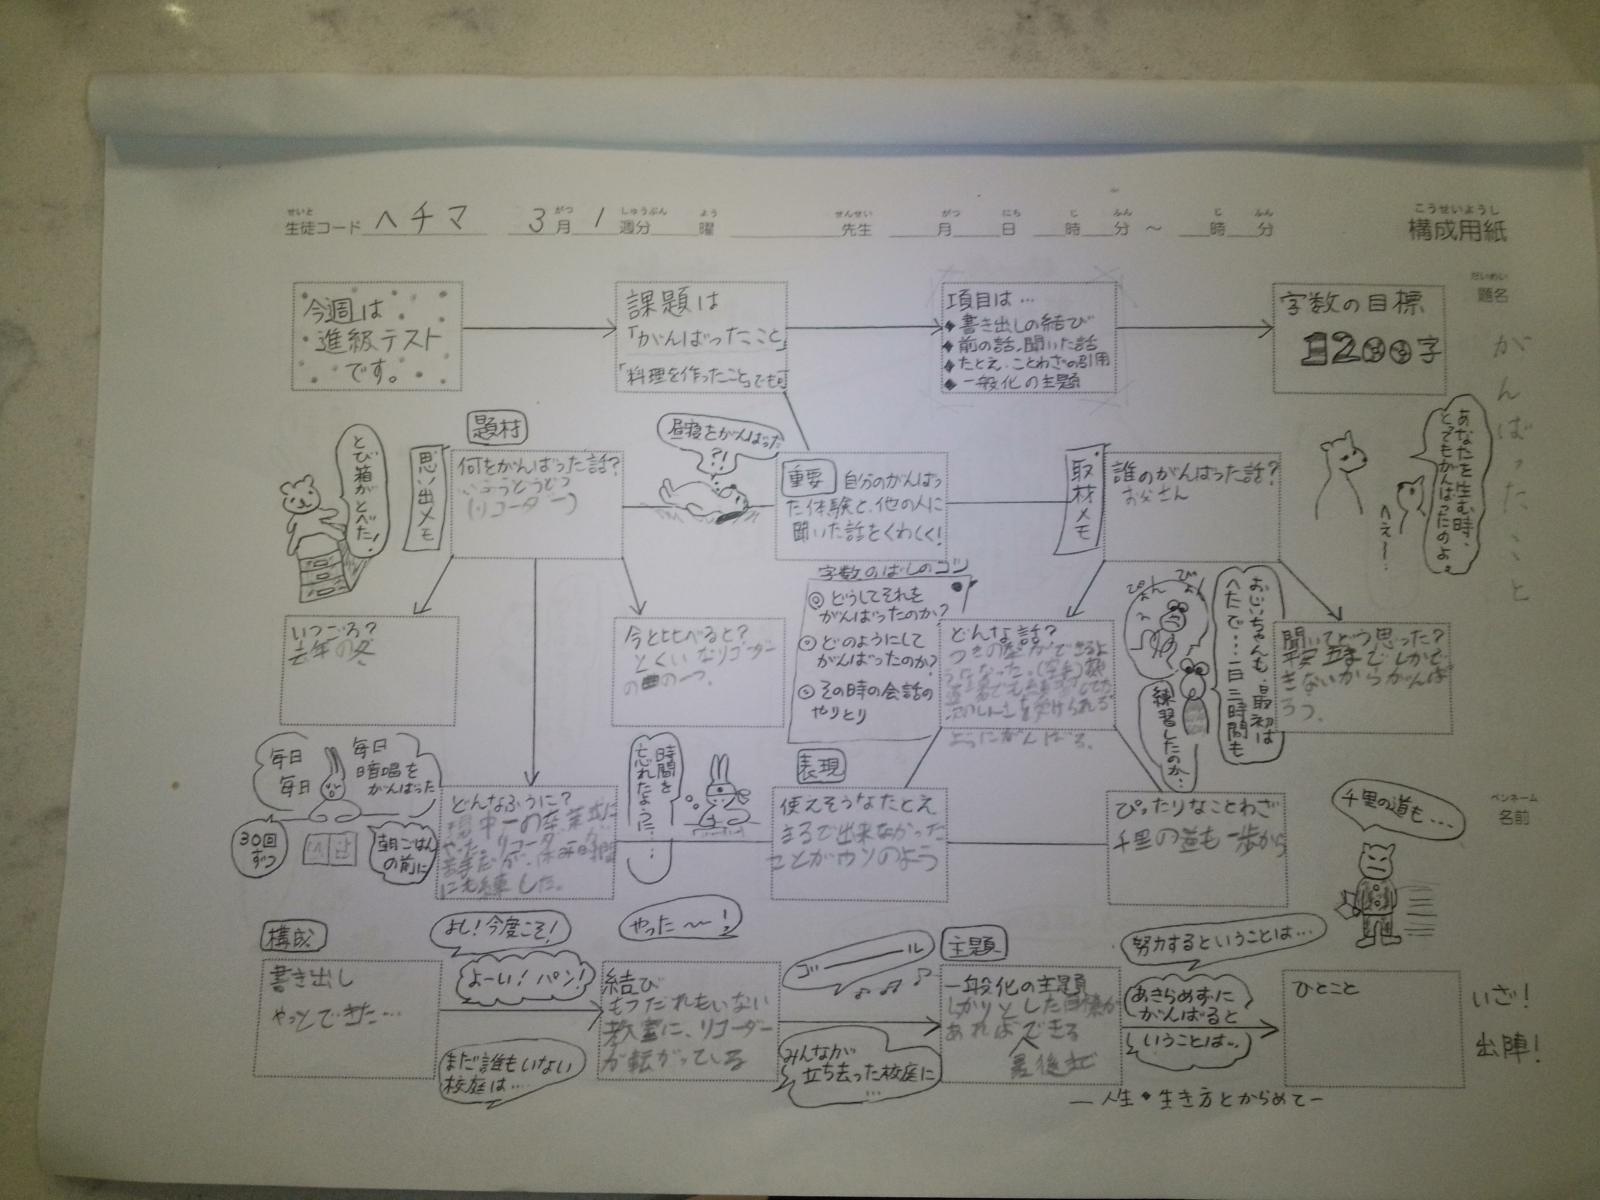 せいと がつ しゅうぶん よう せんせい がつ にち じ ふん じ ふん こうせいようし
生徒コード ヘチマ 3月 1週分 曜 先生 月 日 時 分 ～ 時 分 構成用紙
だいめい
題名
がんばったこと
今週は
進級テスト
です。
課題は
「がんばったこと」
「料理を作ったこと」でも可
項目は…
◆書き出しの結び
◆前の話、聞いた話
◆たとえ、ことわざの引用
◆一般化の主題
字数の目標
1200字
題材
思い出メモ
何をがんばった話?
(リコーダー)
とび箱がとべた!
昼寝をがんばった
?!
重要 自分のがんばっ
た体験と、他の人に
聞いた話をくわしく!
取材メモ
誰のがんばった話?
お父さん
あなたを生む時、
とてもがんばったのよ。
へぇ～
いつごろ?
去年の冬
今と比べると?
とくいなリコーダー
の曲の一つ。
字数のばしのコツ
どうしてそれを
がんばったのか?
どのようにして
がんばったのか?
その時の会話の
やりとり
どんな話?
ようにがんばる。
ぴょん ぴょん
おじいちゃんも、最初は
へたで…一日三時間も
練習したのか、
聞いてどう思った?
きないからがんば
ろう。
毎日
毎日
毎日
暗唱を
がんばった
30回
ずつ
朝ごはん
の前に
どんなふうに?
時間を
忘れたように…
表現
使えそうなたとえ
まるで出来なかった
ことがウソのよう
ぴったりなことわざ
千里の道も一歩から
ペンネーム
名前
千里の道も…
構成
書き出し
やっとできた…
よし!今度こそ!
よーい!パン!
まだ誰もいない
校庭は…
やった～!
結び
もうだれもいない
教室に、リコーダー
が転がっている
ゴーール
みんなが
立ち去った校庭に
…
主題
一般化の主題
あればできる
最後まで
努力するということは…
あきらめずに
がんばると
いうことは…
ひとこと
いざ!
出陣!
—人生・生き方とからめて—